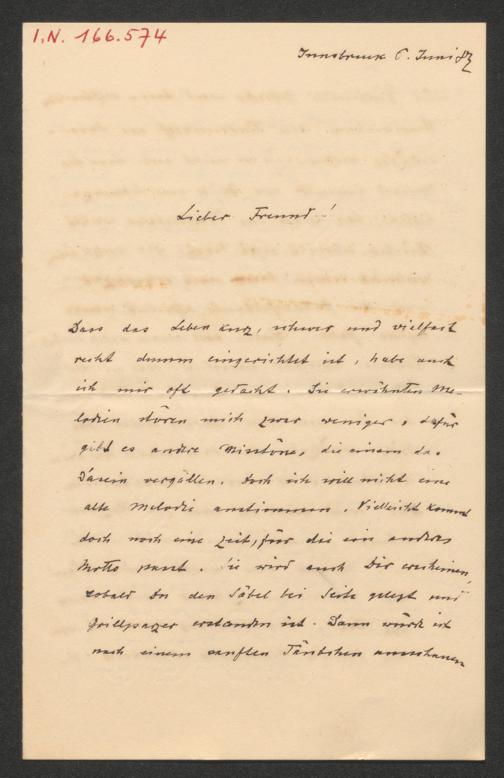 I.N. 166.574
Innsbruck 6. Juni 87
Lieber Freund!
Dass das Leben kurz, schwer und vielfach
recht dumm eingerichtet ist, habe auch
ich mir oft gedacht. Die erwähnten Me-
lodien stören mich zwar weniger, dafür
gibt es andere Misstöne, die einem das
Dasein vergällen. Doch ich will nicht eine
alte Melodie anstimmen. Vielleicht kommt
doch noch eine Zeit, für die ein anderes
Motto passt. Sie wird auch Dir erscheinen,
sobald Du den Säbel bei Seite gelegt und
Grillparzer erstanden ist. Dann würde ich
nach einem sanften Täubchen ausschauen